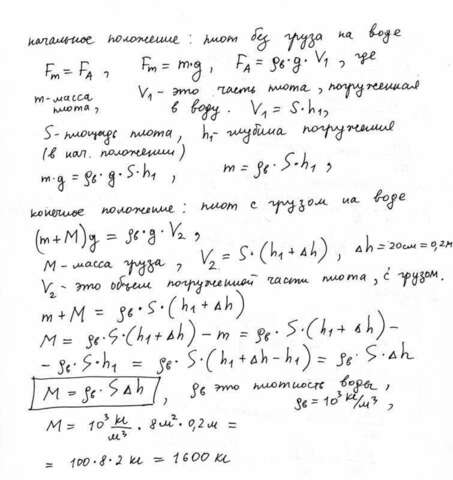 начальное положение: плот без груза на воде
Fт = FA, Fт = m·g, FA = ρв·g·V1, где
m-масса плота, V1 - это часть плота, погруженная в воду. V1 = S·h1,
S-площадь плота, h1-глубина погружения
(в нач. положении)
m·g = ρв·g·S·h1, m = ρв·S·h1,
конечное положение: плот с грузом на воде
(m+M)g = ρв·g·V2,
M-масса груза, V2 = S·(h1+Δh), Δh=20см=0,2м
V2 - это объем погруженной части плота, с грузом.
m+M = ρв·S·(h1+Δh)
M = ρв·S·(h1+Δh) - m = ρв·S·(h1+Δh) -
- ρв·S·h1 = ρв·S·(h1+Δh-h1) = ρв·S·Δh
M = ρв·SΔh, ρв это плотность воды,
ρв = 10³ кг/м³,
M = 10³ кг/м³ · 8м²·0,2м =
= 100·8·2 кг = 1600 кг